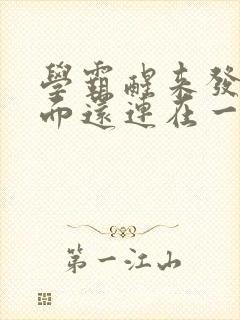 學霸醒來發
而還連在一
第一江山